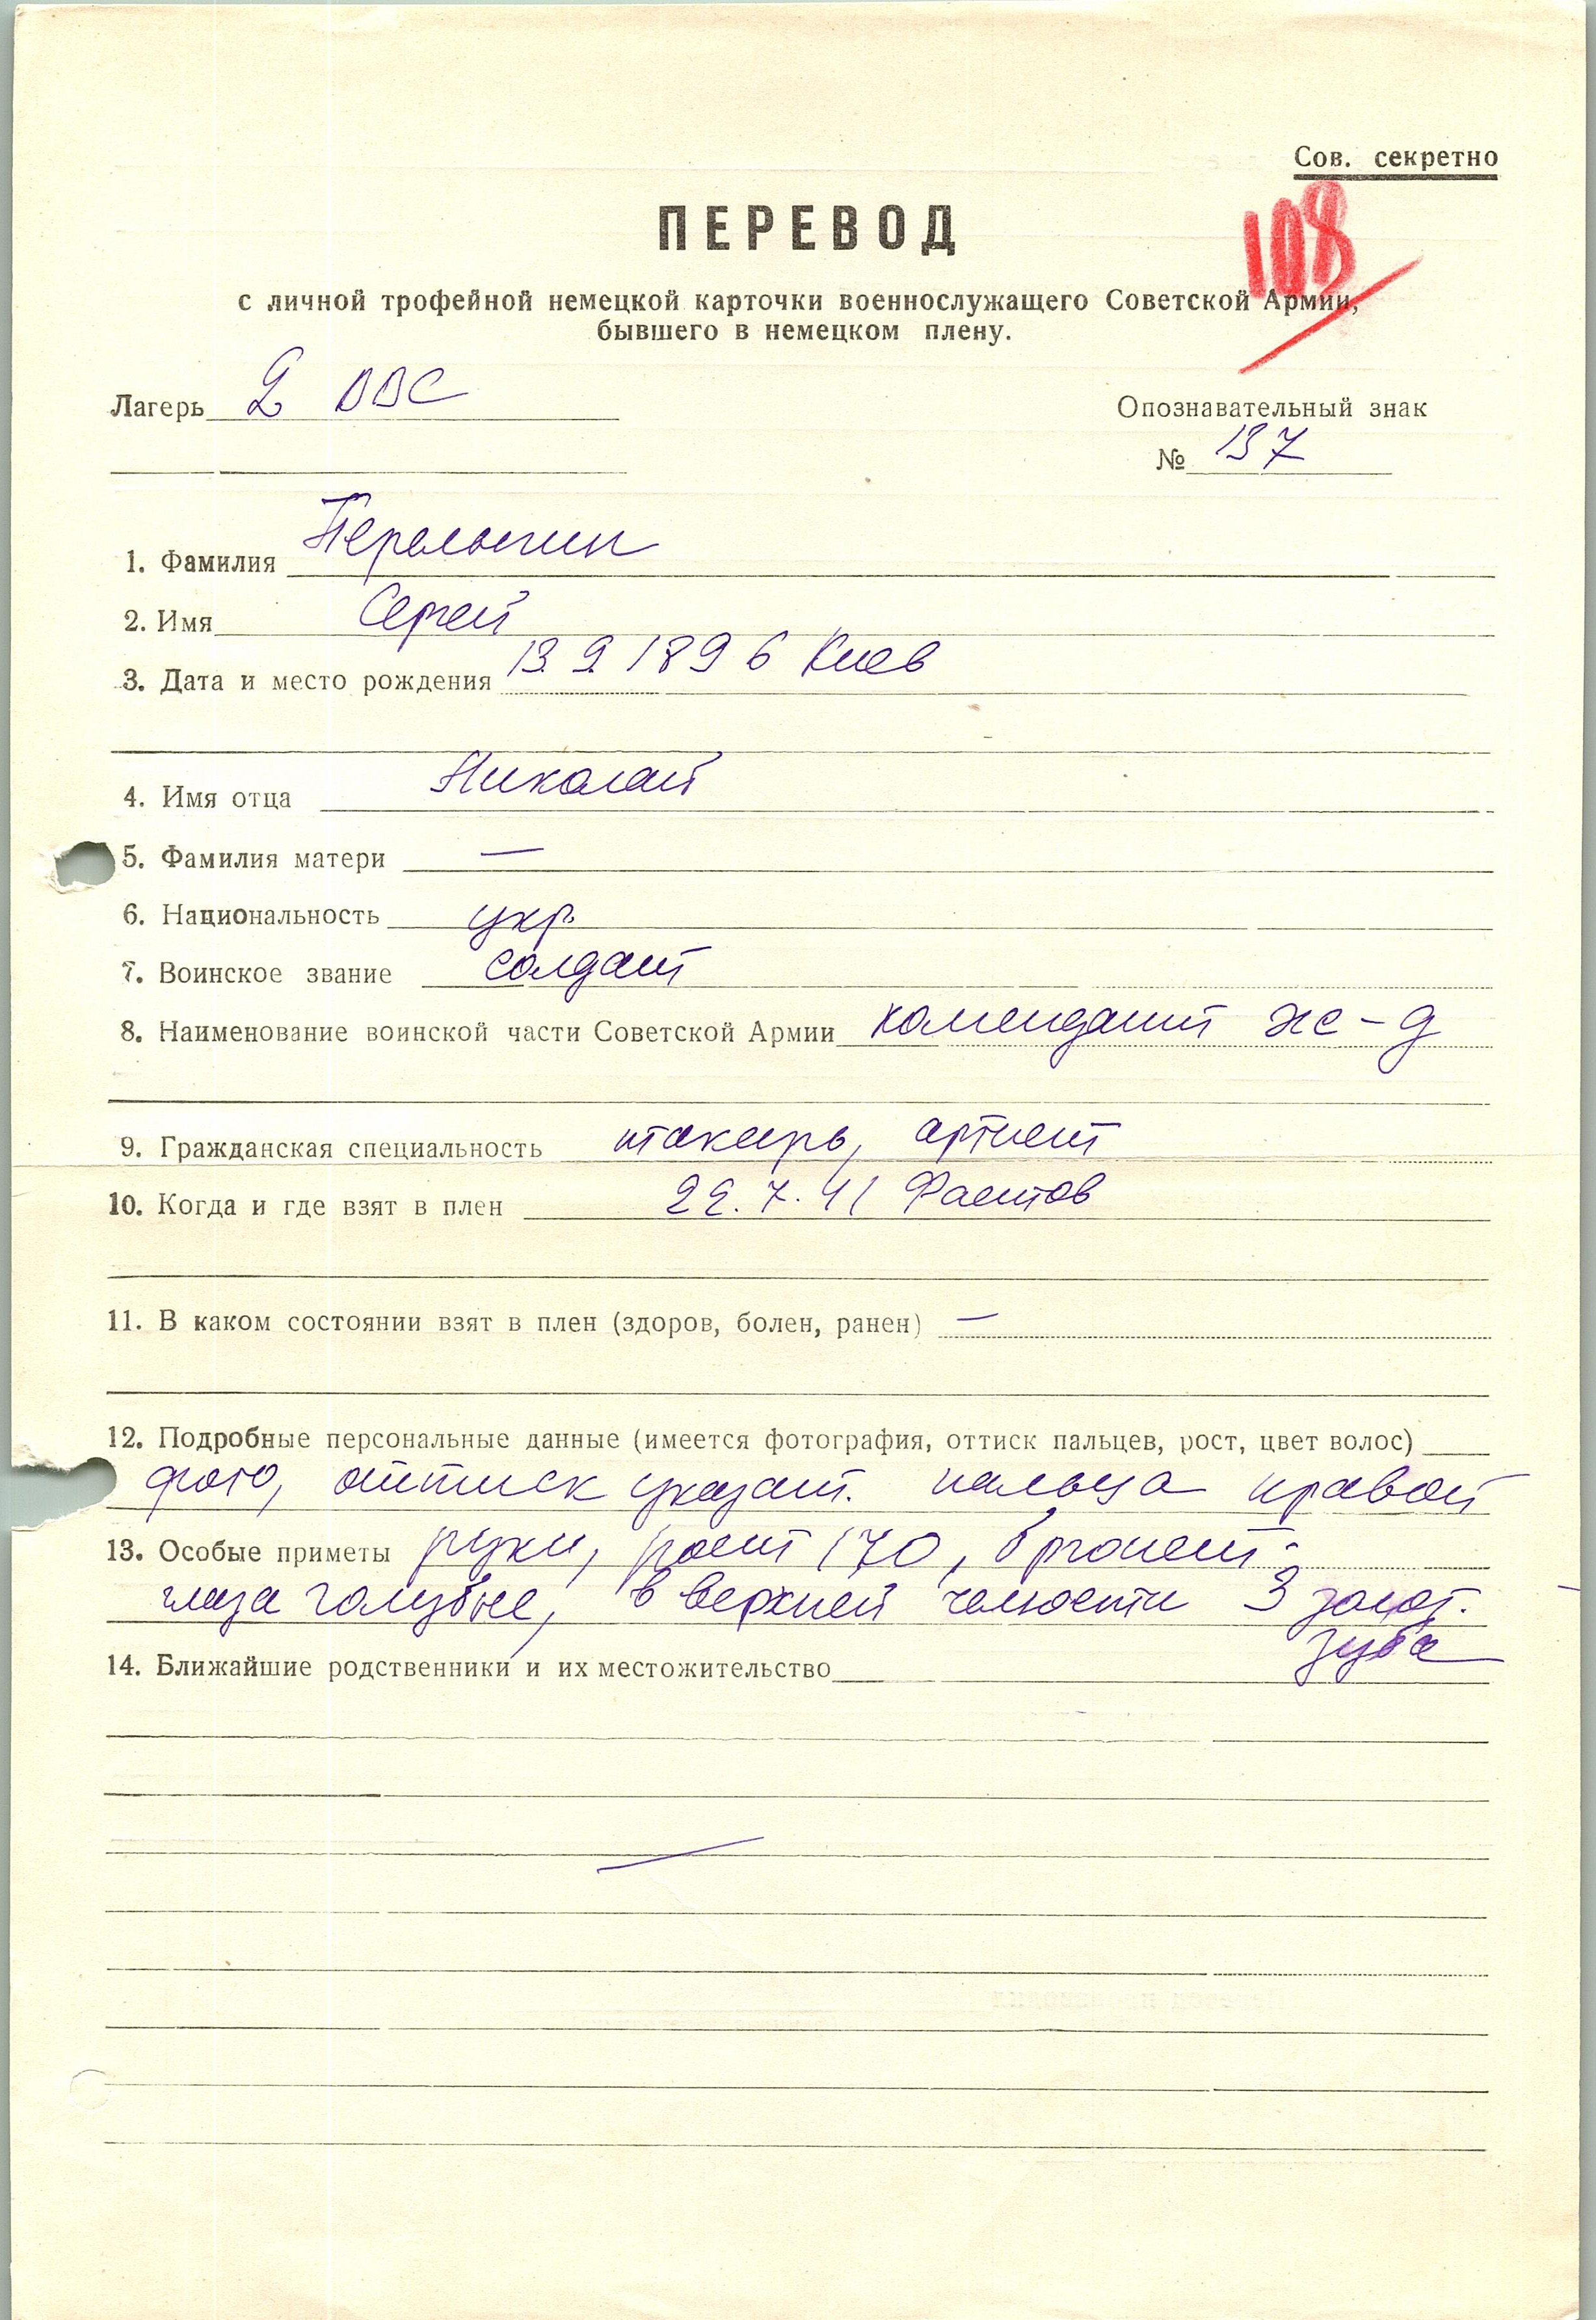 Сов. секретно
108
ПЕРЕВОД
с личной трофейной немецкой карточки военнослужащего Советской Армии,
бывшего в немецком плену.
Лагерь 2 ВВС
Опознавательный знак
№ 137
1. Фамилия
2. Имя Сергей
3. Дата и место рождения 13.9.1896 Киев
4. Имя отца Николай
5. Фамилия матери —
6. Национальность укр.
7. Воинское звание солдат
8. Наименование воинской части Советской Армии комендант ж-д
9. Гражданская специальность артист
10. Когда и где взят в плен 22.7.41 Фастов
11. В каком состоянии взят в плен (здоров, болен, ранен) —
12. Подробные персональные данные (имеется фотография, оттиск пальцев, рост, цвет волос)
фото, оттиск указат. пальца правой
13. Особые приметы руки, рост 170, брюнет.
глаза голубые, в верхней челюсти 3 золот.
зуба
14. Ближайшие родственники и их местожительство
—